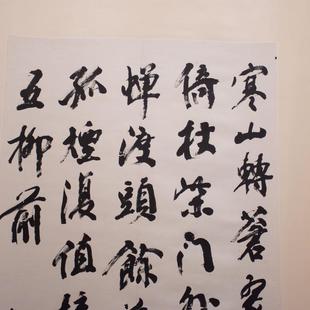 寒山轉蒼
倚杖柴门外
蟬渡頭餘
孤煙復值
五柳前